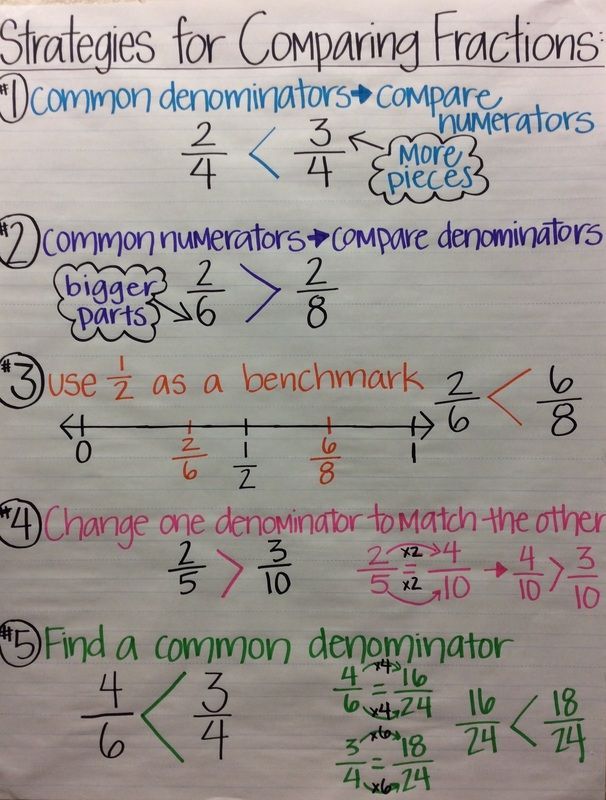 Strategies for Comparing Fractions:
#1 common denominators → compare
numerators
2/4 < 3/4
More
pieces
#2 common numerators → compare denominators
bigger
parts
2/6 > 2/8
#3 use 1/2 as a benchmark 2/6 < 6/8
0 2/6 1/2 6/8 1
#4 Change one denominator to Match the other
2/5 > 3/10 2/5 = 4/10 → 4/10 > 3/10
x2
x2
#5 Find a common denominator
4/6 < 3/4
x4
4/6 = 16/24
x4
16/24 < 18/24
x6
3/4 = 18/24
x6